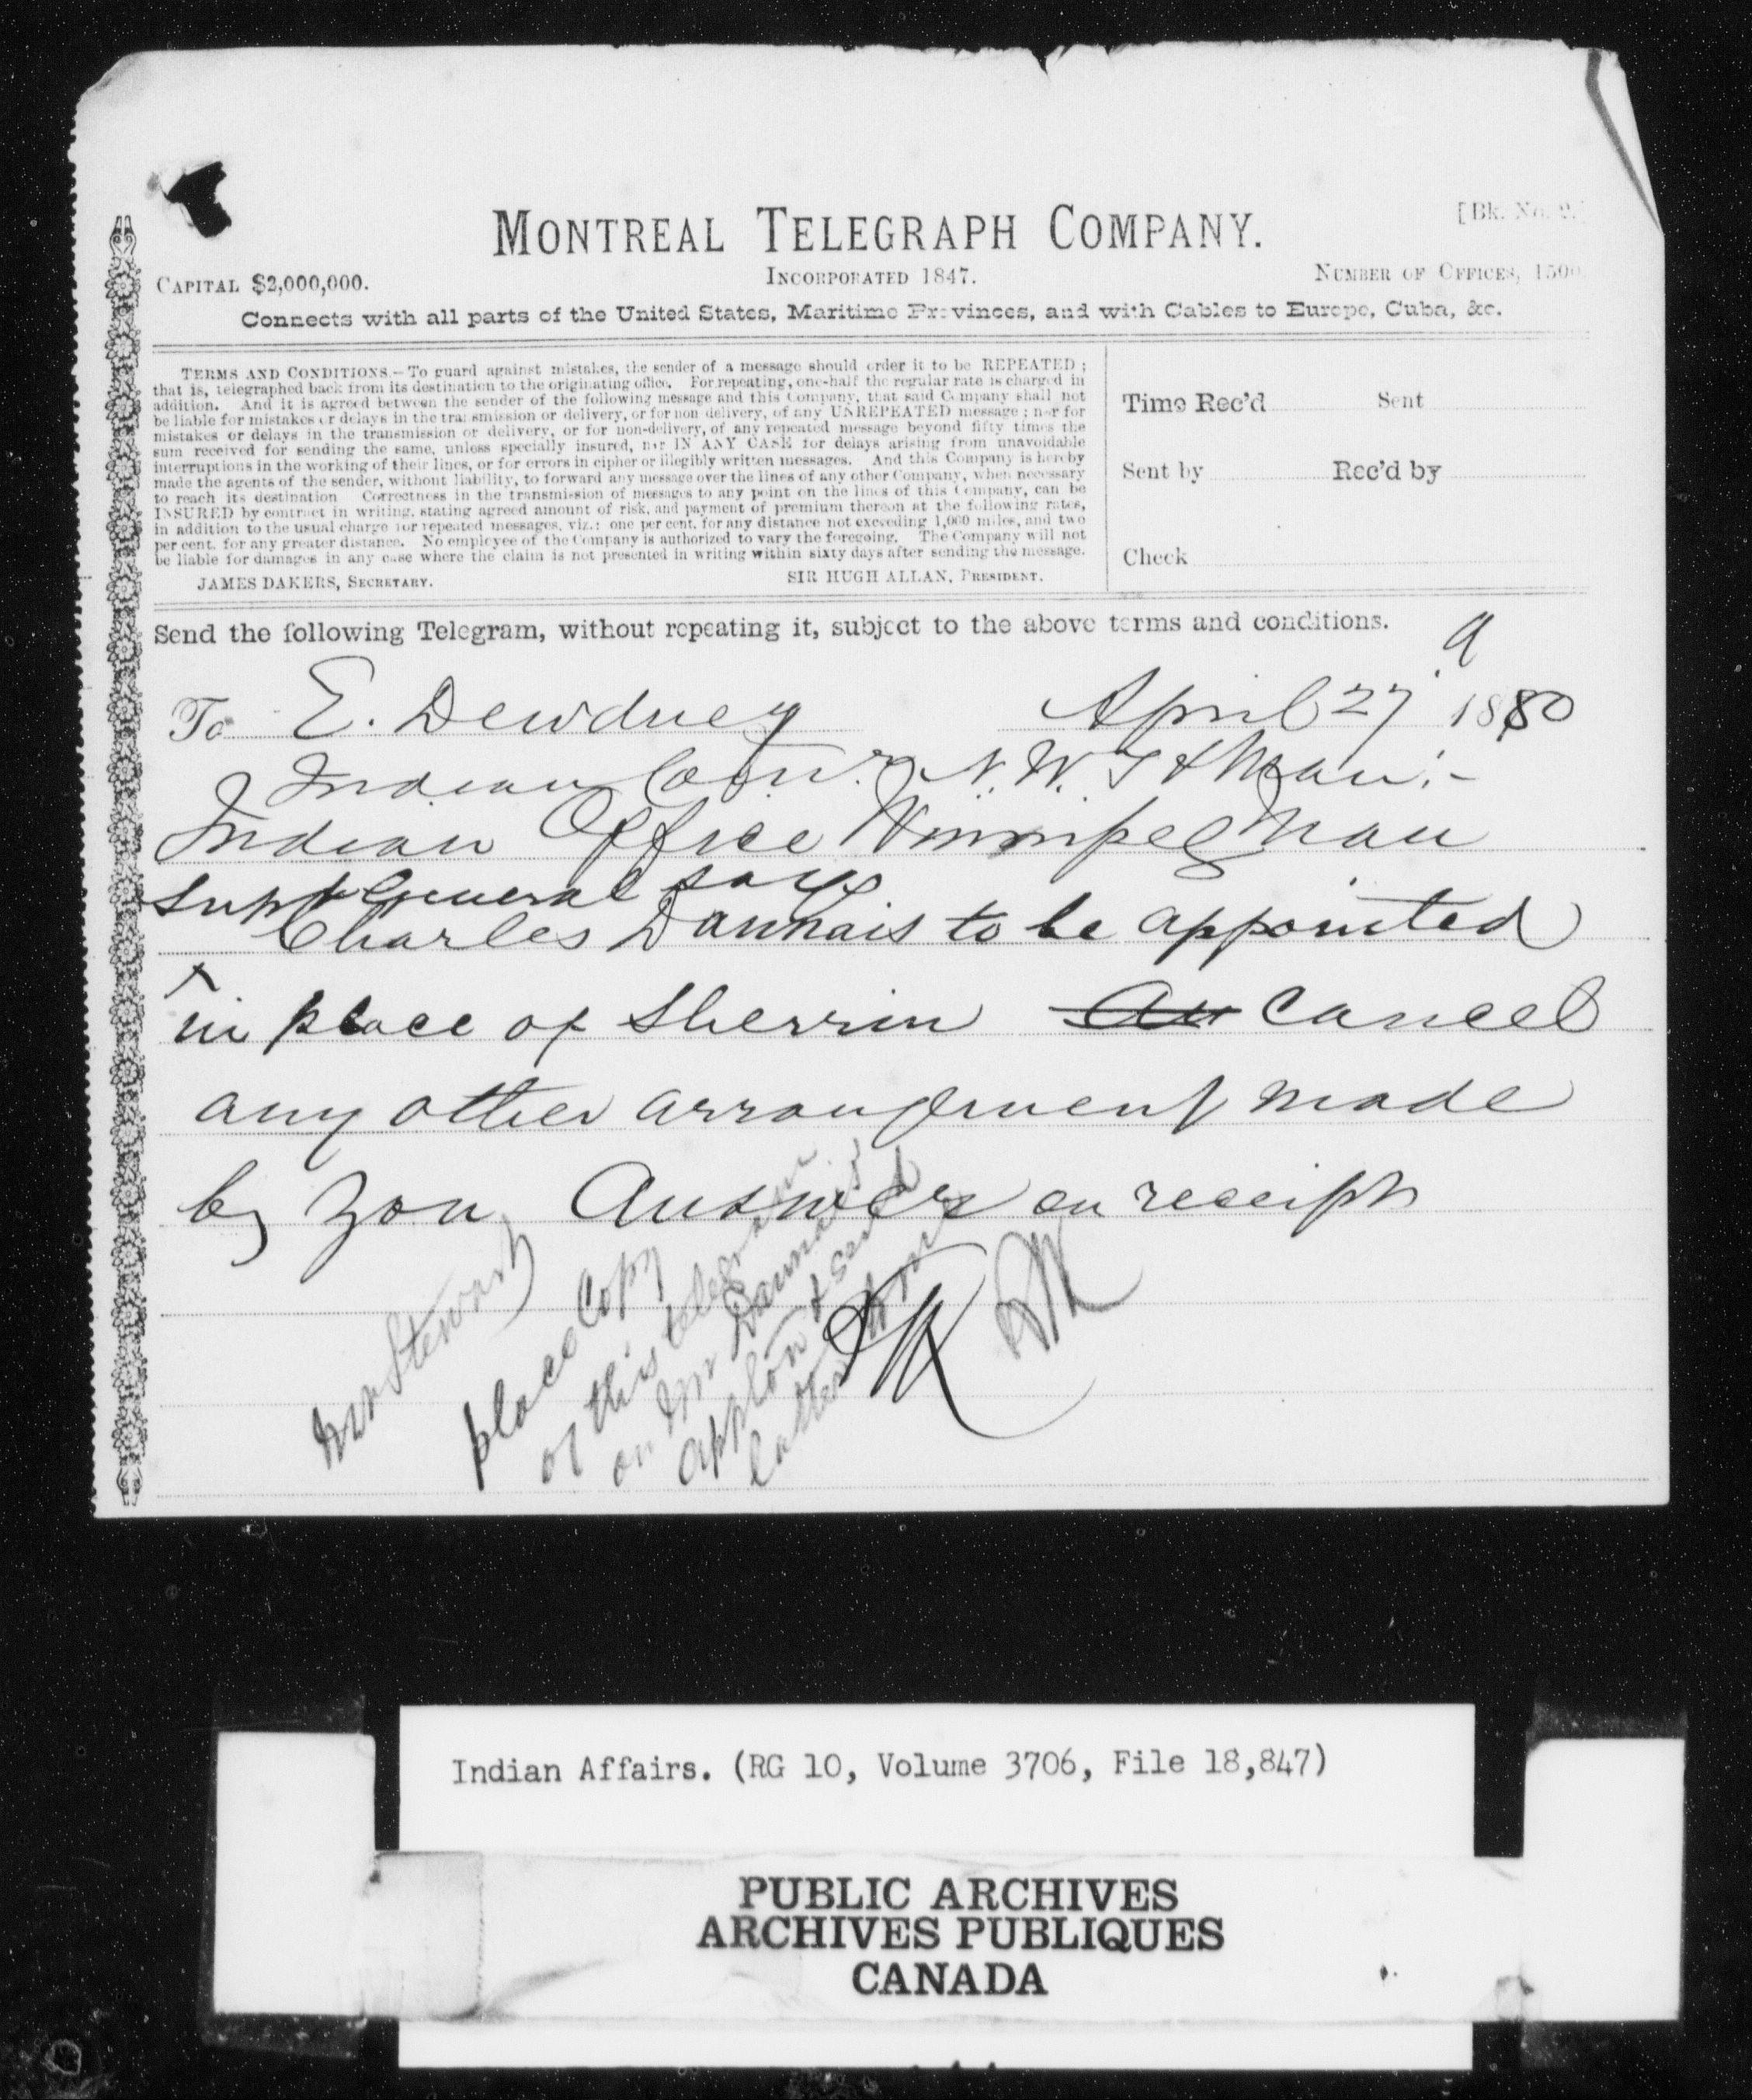 [Bk. No. 2.]
MONTREAL TELEGRAPH COMPANY.
CAPITAL $2,000,000. INCORPORATED 1847. NUMBER OF OFFICES, 1500
Connects with all parts of the United States, Maritime Provinces, and with Cables to Europe, Cuba, &c.
TERMS AND CONDITIONS.—To guard against mistakes, the sender of a message should order it to be REPEATED;
that is, telegraphed back from its destination to the originating office. For repeating, one-half the regular rate is charged in
addition. And it is agreed between the sender of the following message and this Company, that said Company shall not
be liable for mistakes or delays in the transmission or delivery, or for non delivery, of any UNREPEATED message; nor for
mistakes or delays in the transmission or delivery, or for non-delivery, of any repeated message beyond fifty times the
sum received for sending the same, unless specially insured, nor IN ANY CASE for delays arising from unavoidable
interruptions in the working of their lines, or for errors in cipher or illegibly written messages. And this Company is hereby
made the agents of the sender, without liability, to forward any message over the lines of any other Company, when necessary
to reach its destination Correctness in the transmission of messages to any point on the lines of this Company, can be
INSURED by contract in writing, stating agreed amount of risk, and payment of premium thereon at the following rates,
in addition to the usual charge for repeated messages, viz.: one per cent. for any distance not exceeding 1,000 miles, and two
per cent. for any greater distance. No employee of the Company is authorized to vary the foregoing. The Company will not
be liable for damages in any case where the claim is not presented in writing within sixty days after sending the message.
JAMES DAKERS, SECRETARY. SIR HUGH ALLAN, PRESIDENT.
Time Rec'd Sent
Sent by Rec'd by
Check
Send the following Telegram, without repeating it, subject to the above terms and conditions.
To E. Dewdney April 27 1880
Indian Com.r N.W.T & Man:-
Indian Office Winnipeg Man
Supt General says
Charles Daunais to be appointed
in place of Sherrin Cancel
any other arrangement made
by you Answer on receipt
Mr Stewart
place copy
of this telegram
on Mr Daunais
applon & send
latter
Indian Affairs. (RG 10, Volume 3706, File 18,847)
PUBLIC ARCHIVES
ARCHIVES PUBLIQUES
CANADA